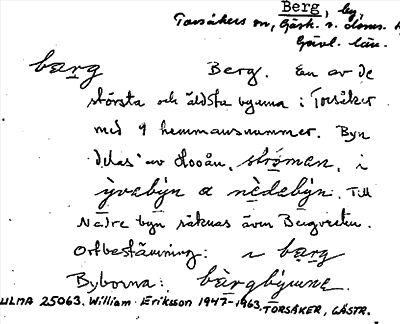 Berg, by
Torsåkers sn, Gästr. s. doms.
Gävl. län.
bærg Berg. En av de
största och äldsta byarna i Torsåker
med 9 hemmansnummer. Byn
delas av Hoån, strǿmen, i
ỳvebýn a nèdebýn. Till
Nedre byn räknas även Bergverken.
Ortbestämning: i bærg
Byborna: bærgbýarne
ULMA 25063. William Eriksson 1947-1963. TORSÅKER, GÄSTR.